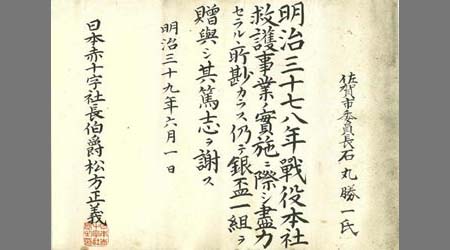 佐賀市委員長石丸勝一氏
明治三十七八年戰役本社
救護事業ノ實施ニ際シ盡力
セラルヽ所尠カラス仍テ銀盃一組ヲ
贈與シ其篤志ヲ謝ス
明治三十九年六月一日
日本赤十字社長伯爵松方正義